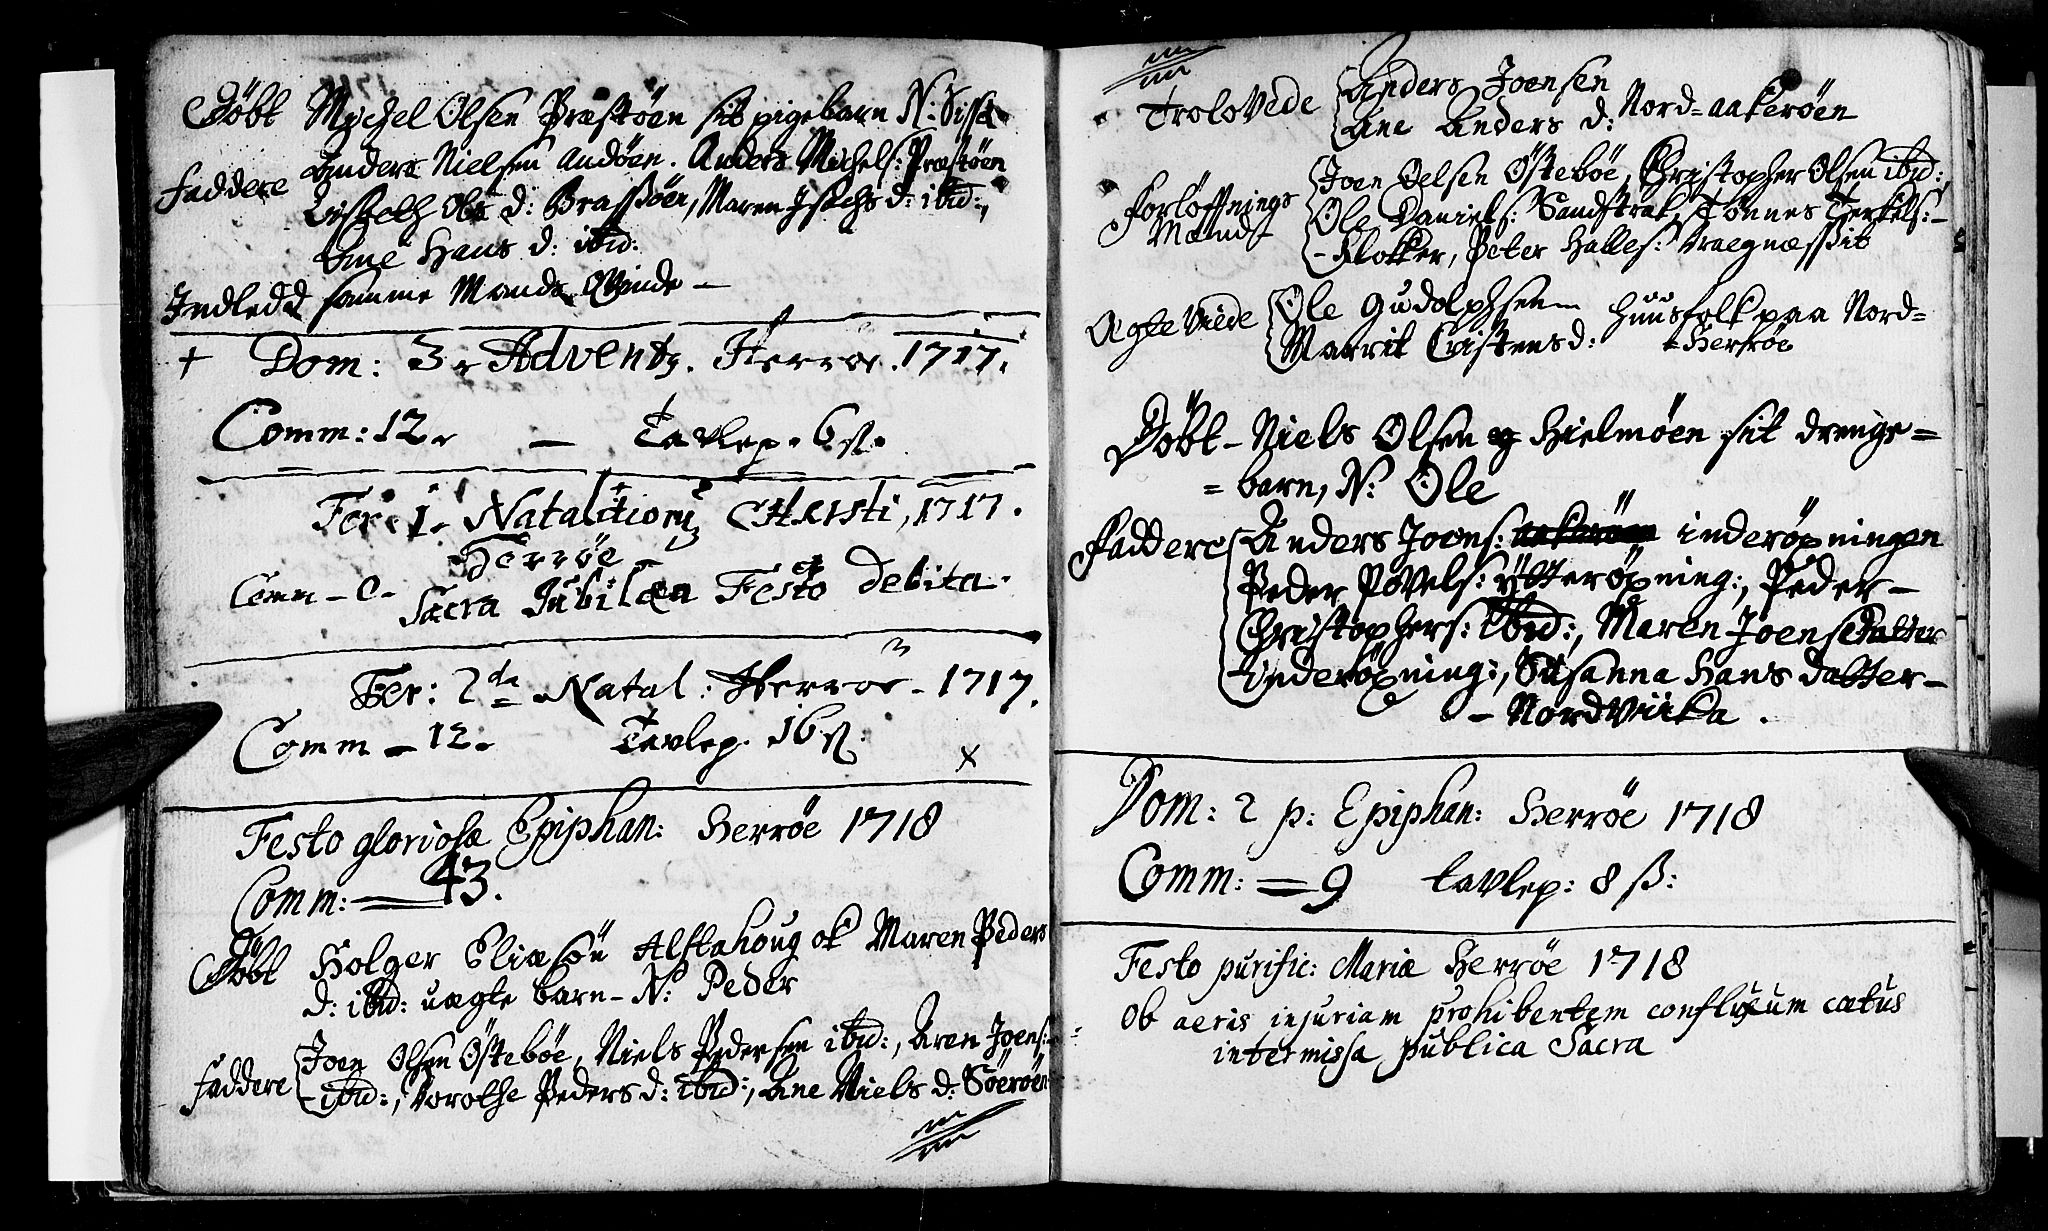 Døbt Mychel Olsen Præstøen sit pigebarn N: Sissel
Anders Nielsen Andøen. Anders Michels: Præstøen
Faddere
Lisbeth Ols d: Brassøen, Maren Isachs d: ibid:,
Ane Hans d: ibid:
Indledd samme Mands Qvinde –
+ Dom: 3 Advent. Herröe. 1717.
Comm: 12. – Tavlep. 6 ß.
Fer. 1. Natalitiorum Christi, 1717.
Herröe
Comm – 0 – Sacra Jubilæa Festo debita.
Fer: 2da Natal: Herröe. 1717.
Comm – 12. Tavlep. 16 ß. x
Festo gloriosæ Epiphan: Herröe 1718
Comm: = 43.
Døbt Holger Eliæsön Alstahoug ok Maren Peders
d: ibid: uægte barn – N: Peder
Joen Olsen Östebøe, Niels Pedersen ibid:, Aren Joens:
Faddere – ibid:, Dorothe Peders d: ibid:, Ane Niels d: Söeröen
Trolovede Anders Joensen
Ane Anders d: Nord-aakeröen
Forløffnings Mænd
Joen Oelsen Östebøe, Christopher Olsen ibid:,
Ole Daniels: Sandstrak, Tönnes Terkels: –
– Flokker, Peter Halles: Kraegnæssit
Ægte Viede Ole Gudolphsen huusfolk paa Nord=
Marrit Cristens d: = Herröe
Døbt – Niels Olsen Hielmöen sit drenge=
= barn, N: Ole
Faddere Anders Joens: inderöpningen
Peder Povels: ytteröpning:, Peder –
Christophers: ibid:, Maren Joensdatter
Inderöpning:, Susanna Hans datter –
– Nordviika.
Dom: 2 p: Epiphan: Herröe 1718
Comm: = 9 tavlep: 8 ß:
Festo purific: Mariæ Herröe 1718
Ob aeris injuriam prohibentem confluxum cætus
intermissa publica Sacra